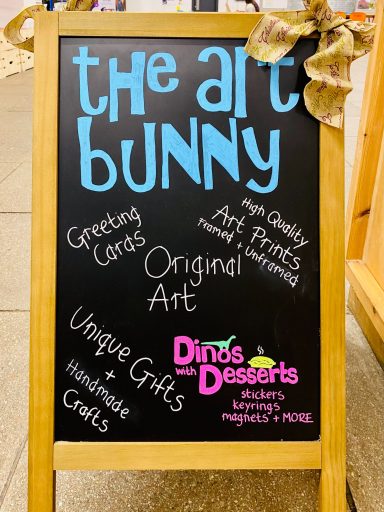 the art
bunny
Greeting
Cards
High Quality
Art Prints
Framed + Unframed
Original
Art
Unique Gifts
+
Handmade
Crafts
Dinos
with Desserts
stickers
keyrings
magnets + MORE